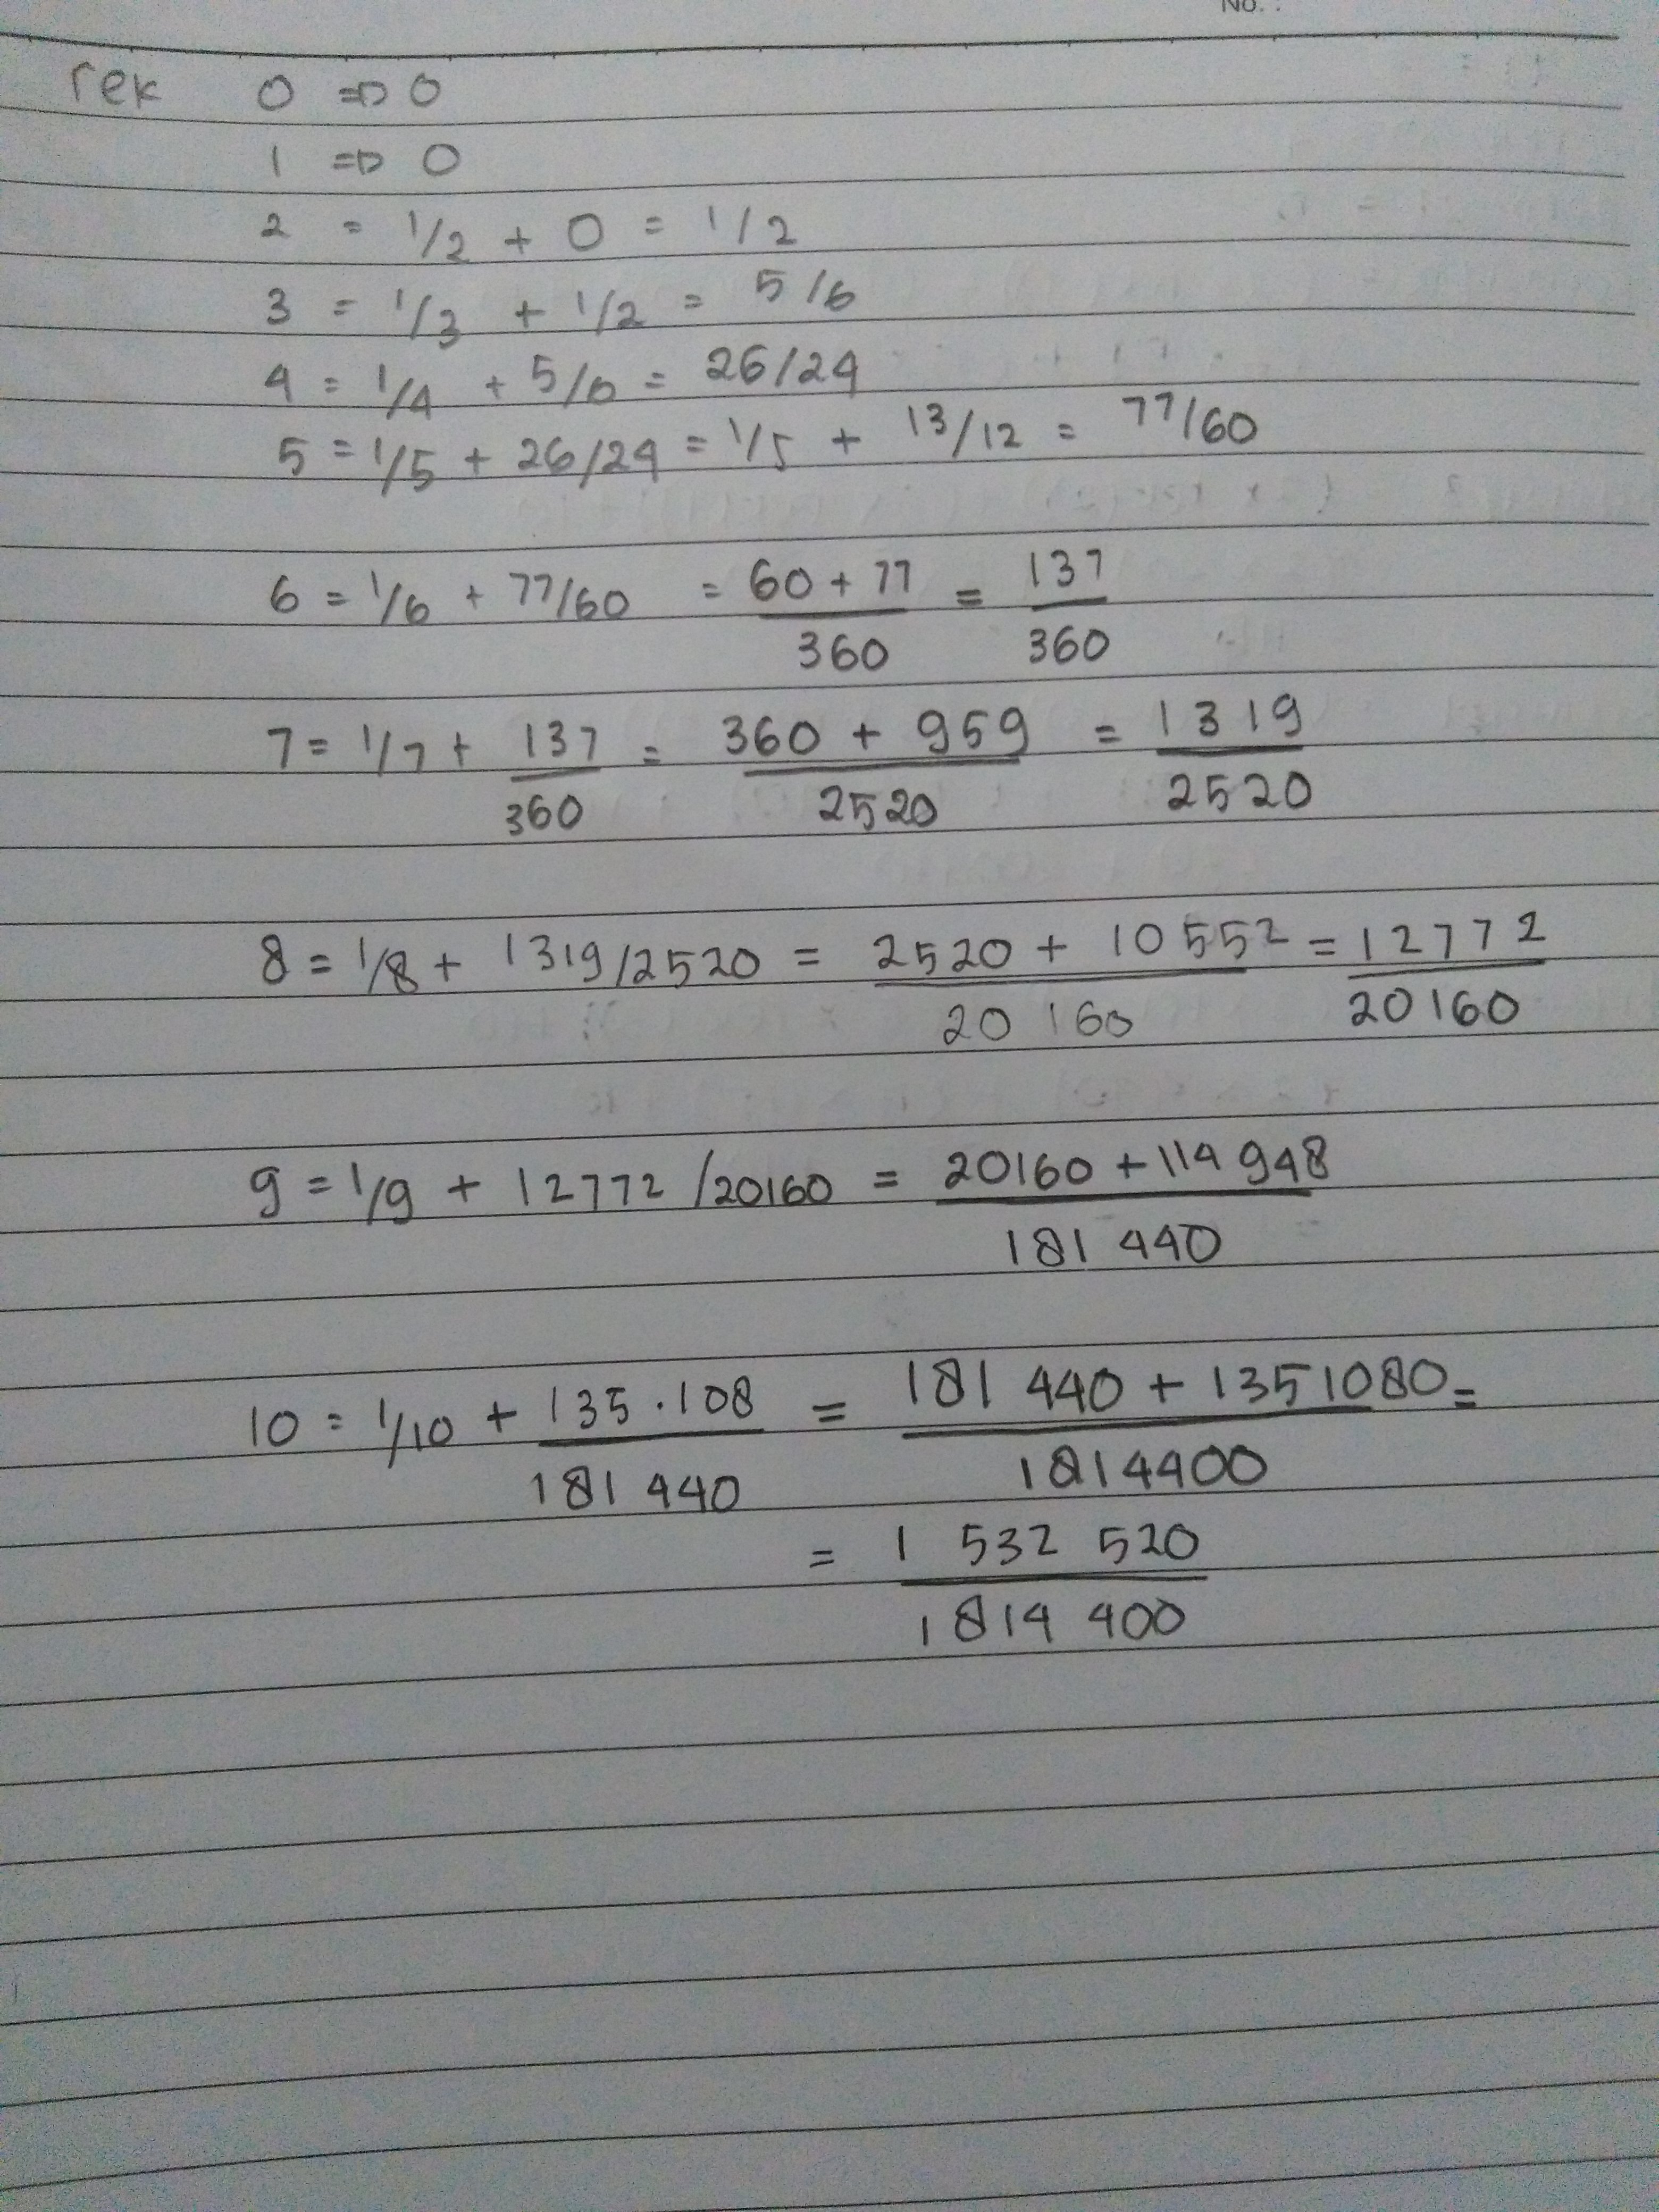 No. :
rek 0 => 0
1 => 0
2 = 1/2 + 0 = 1/2
3 = 1/3 + 1/2 = 5/6
4 = 1/4 + 5/6 = 26/24
5 = 1/5 + 26/24 = 1/5 + 13/12 = 77/60
6 = 1/6 + 77/60 = 60 + 77 = 137
360 360
7 = 1/7 + 137 = 360 + 959 = 1319
360 2520 2520
8 = 1/8 + 1319/2520 = 2520 + 10552 = 12772
20160 20160
9 = 1/9 + 12772/20160 = 20160 + 114948
181440
10 = 1/10 + 135.108 = 181440 + 1351080 =
181440 1814400
= 1 532 520
1814 400